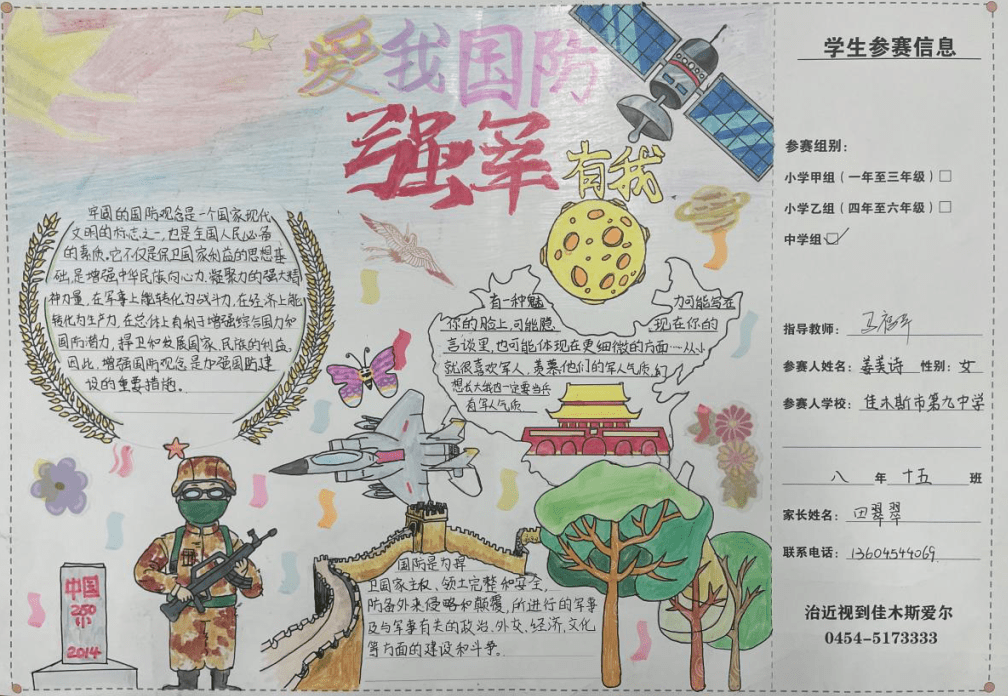 爱我国防
强军有我
牢固的国防观念是一个国家现代
文明的标志之一,也是全国人民必备
的素质。它不仅是保卫国家利益的思想基
础,是增强中华民族向心力,凝聚力的强大精
神力量,在军事上能转化为战斗力,在经济上能
转化为生产力,在总体上有利于增强综合国力和
国防潜力,捍卫和发展国家、民族的利益。
因此,增强国防观念是加强国防建
设的重要措施。
有一种魅力可能写在
你的脸上,可能隐现在你的
言谈里,也可能体现在更细微的方面……从小
就很喜欢军人,羡慕他们的军人气质,们
想长大我也一定要当兵
有军人气质
中国
2014
国防是为捍
卫国家主权、领土完整和安全,
防备外来侵略和颠覆,所进行的军事
及与军事有关的政治、外交、经济,文化
等方面的建设和斗争。
学生参赛信息
参赛组别:
小学甲组(一年至三年级)□
小学乙组(四年至六年级)□
中学组☑
指导教师:
参赛人姓名:姜美诗 性别:女
参赛人学校:佳木斯市第九中学
八年十五班
家长姓名:田翠翠
联系电话:13604544069
治近视到佳木斯爱尔
0454-5173333